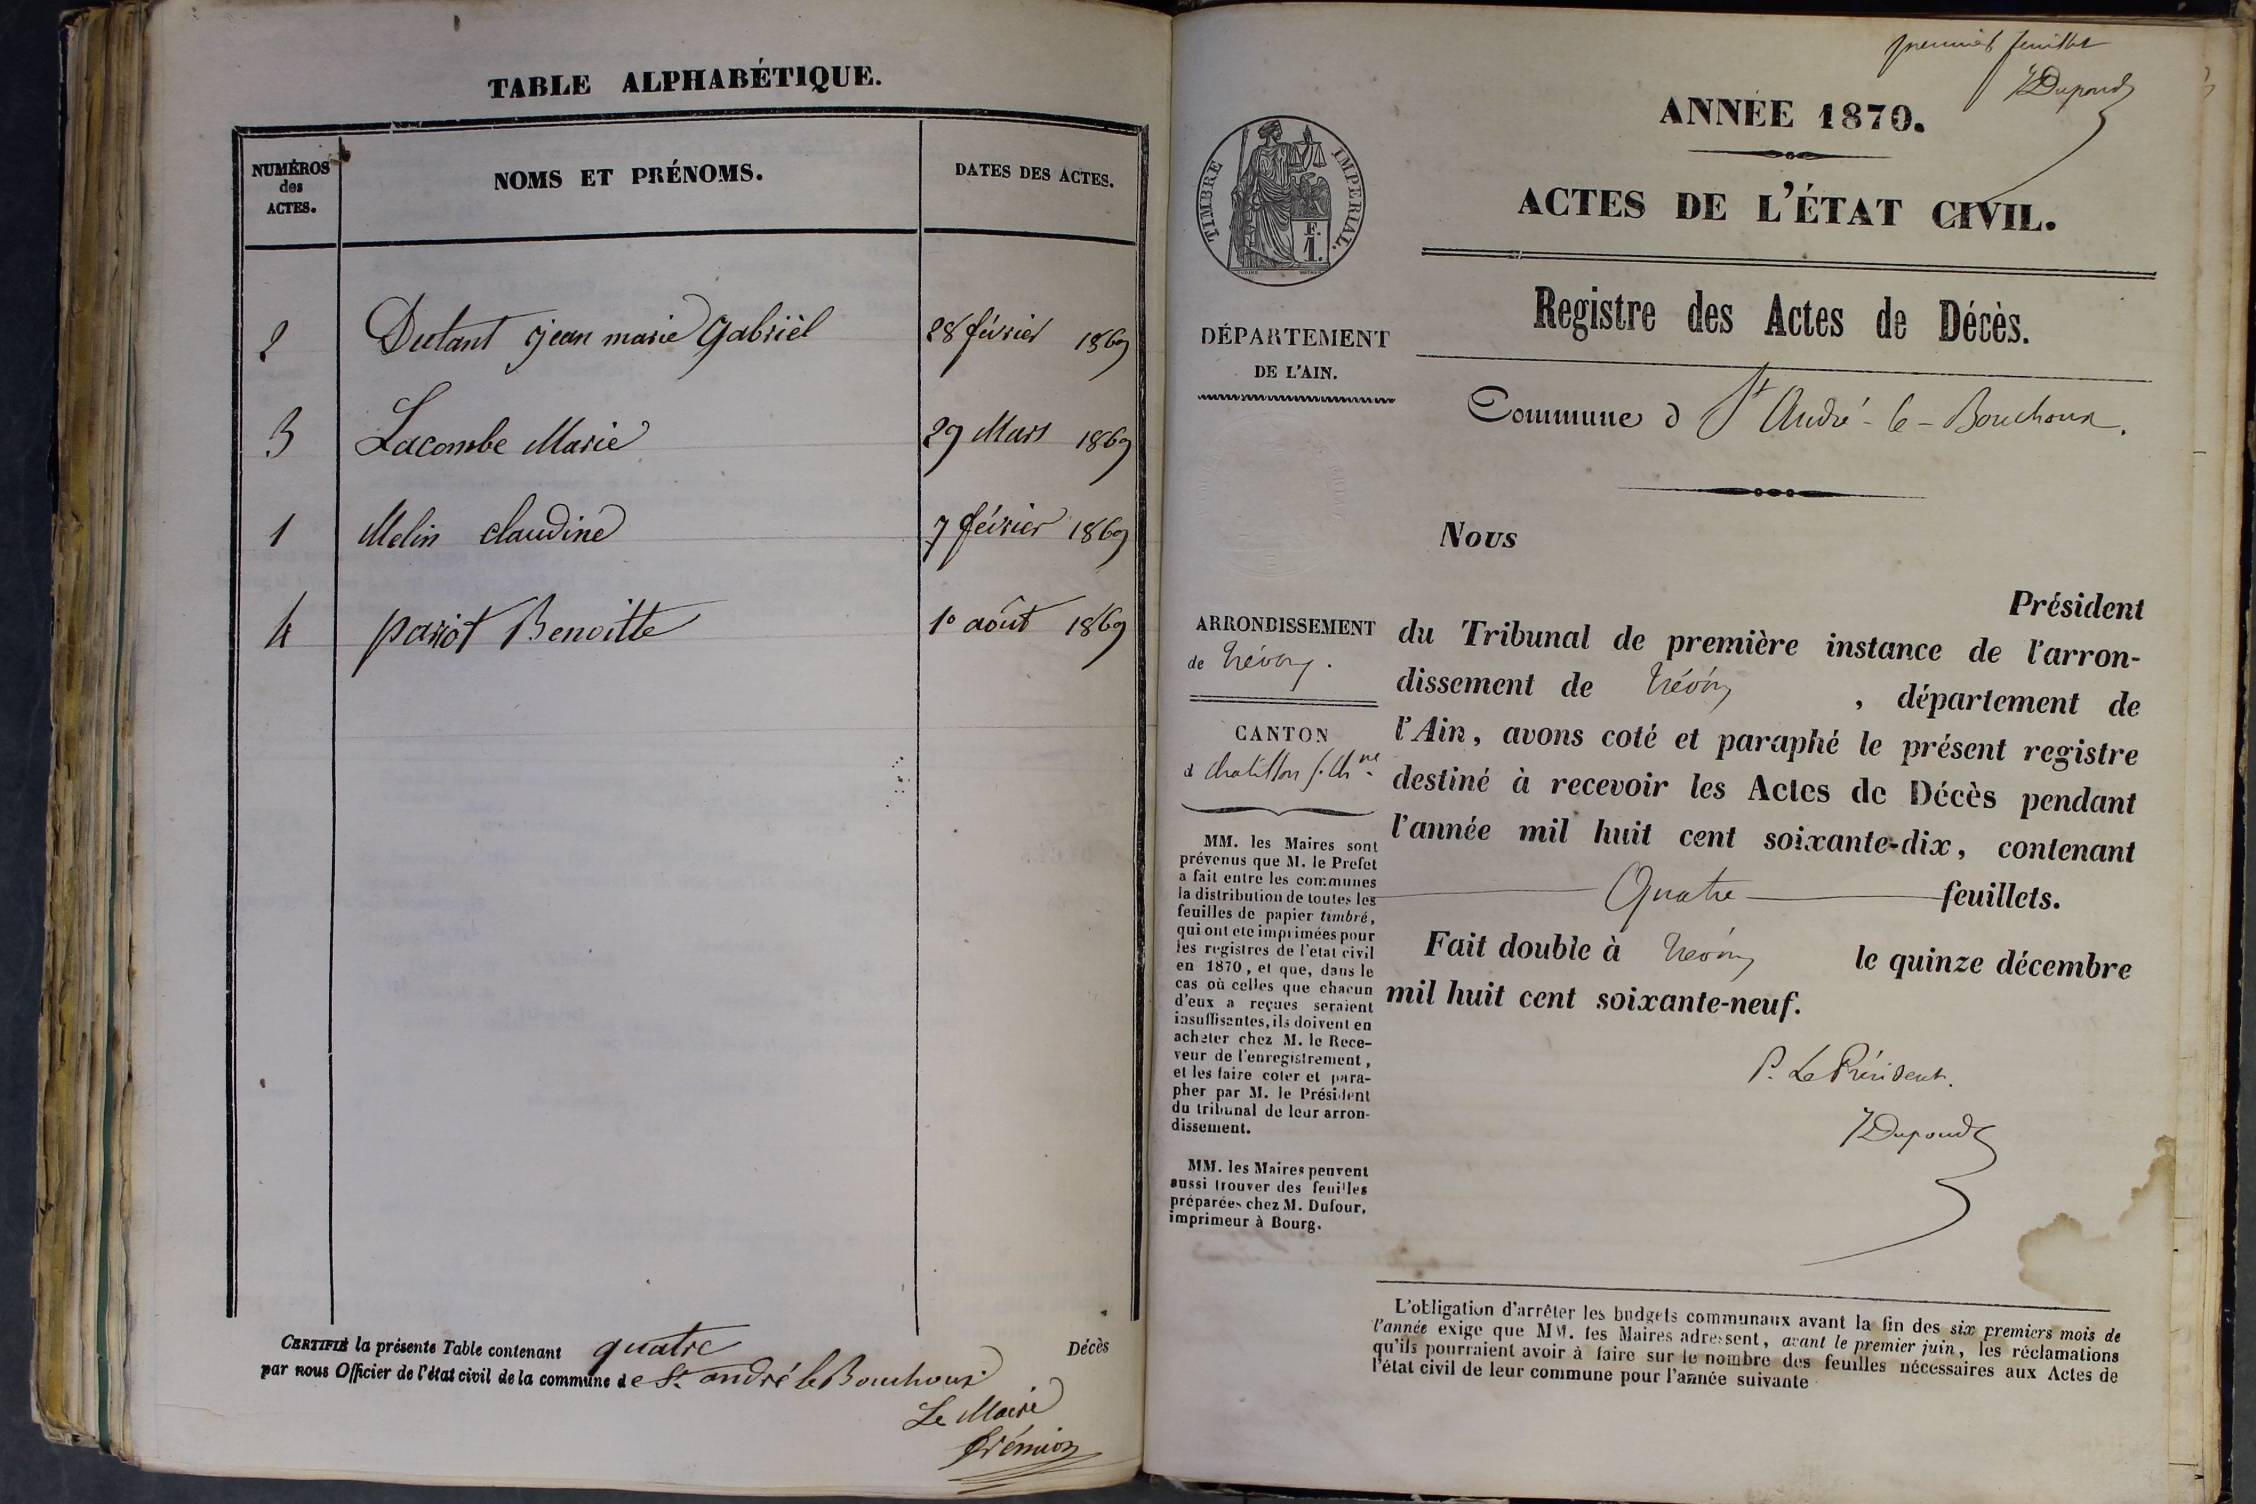 TABLE ALPHABÉTIQUE.
NUMÉROS
des
ACTES.
NOMS ET PRÉNOMS.
DATES DES ACTES.
2 Dutant jean marie Gabriël 28 février 1869
3 Lacombe Marie 29 Mars 1869
1 Melin claudine 7 février 1869
4 pariot Benoitte 1º août 1869
CERTIFIÉ la présente Table contenant quatre Décès
par nous Officier de l'état civil de la commune de St andré le Bouchoux
Le Maire
premier feuillet
Dupond
ANNÉE 1870.
TIMBRE IMPÉRIAL.
F.
1.
ACTES DE L'ÉTAT CIVIL.
Registre des Actes de Décès.
DÉPARTEMENT
DE L'AIN.
Commune d St André-le-Bouchoux.
Nous
Président
du Tribunal de première instance de l'arron-
dissement de Trévoux, département de
l'Ain, avons coté et paraphé le présent registre
destiné à recevoir les Actes de Décès pendant
l'année mil huit cent soixante-dix, contenant
Quatre feuillets.
Fait double à Trévoux le quinze décembre
mil huit cent soixante-neuf.
P. Le Président.
Dupond
ARRONDISSEMENT
de Trévoux.
CANTON
d chatillon s. Ch.ne
MM. les Maires sont
prévenus que M. le Prefet
a fait entre les communes
la distribution de toutes les
feuilles de papier timbré,
qui ont ete imprimées pour
les registres de l'etat civil
en 1870, et que, dans le
cas où celles que chacun
d'eux a reçues seraient
insuffisantes, ils doivent en
acheter chez M. le Rece-
veur de l'enregistrement,
et les faire coter et para-
pher par M. le Président
du tribunal de leur arron-
dissement.
MM. les Maires peuvent
aussi trouver des feuilles
préparées chez M. Dufour,
imprimeur à Bourg.
L'obligation d'arrêter les budgets communaux avant la fin des six premiers mois de
l'année exige que MM. les Maires adressent, avant le premier juin, les réclamations
qu'ils pourraient avoir à faire sur le nombre des feuilles nécessaires aux Actes de
l'état civil de leur commune pour l'année suivante